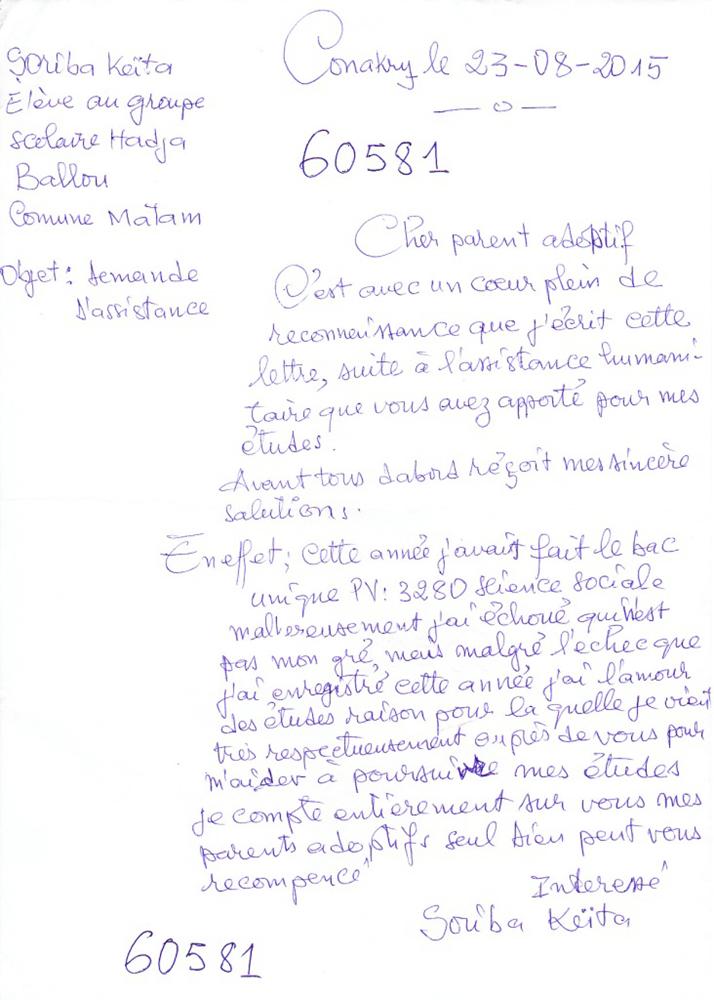 Soriba Keïta
Elève au groupe
scolaire Hadja
Ballou
Comune Matam
Objet : demande
d'assistance
Conakry le 23-08-2015
60581
Cher parent adoptif
C'est avec un cœur plein de
reconnaissance que j'écrit cette
lettre, suite à l'assistance humani-
taire que vous avez apporté pour mes
études.
Avant tous dabord réçoit mes sincère
salutions.
En effet ; cette année j'avait fait le bac
unique PV : 3280 science sociale
maltereusement j'ai échoué qui n'est
pas mon gré, mais malgré l'echec que
j'ai enregistré cette année j'ai l'amour
des études raison pour la quelle je vient
très respectueusement auprès de vous pour
m'aider à poursuivre mes études
je compte entièrement sur vous mes
parents adoptifs seul Dieu peut vous
recompencé
Interessé
Soriba Keïta
60581